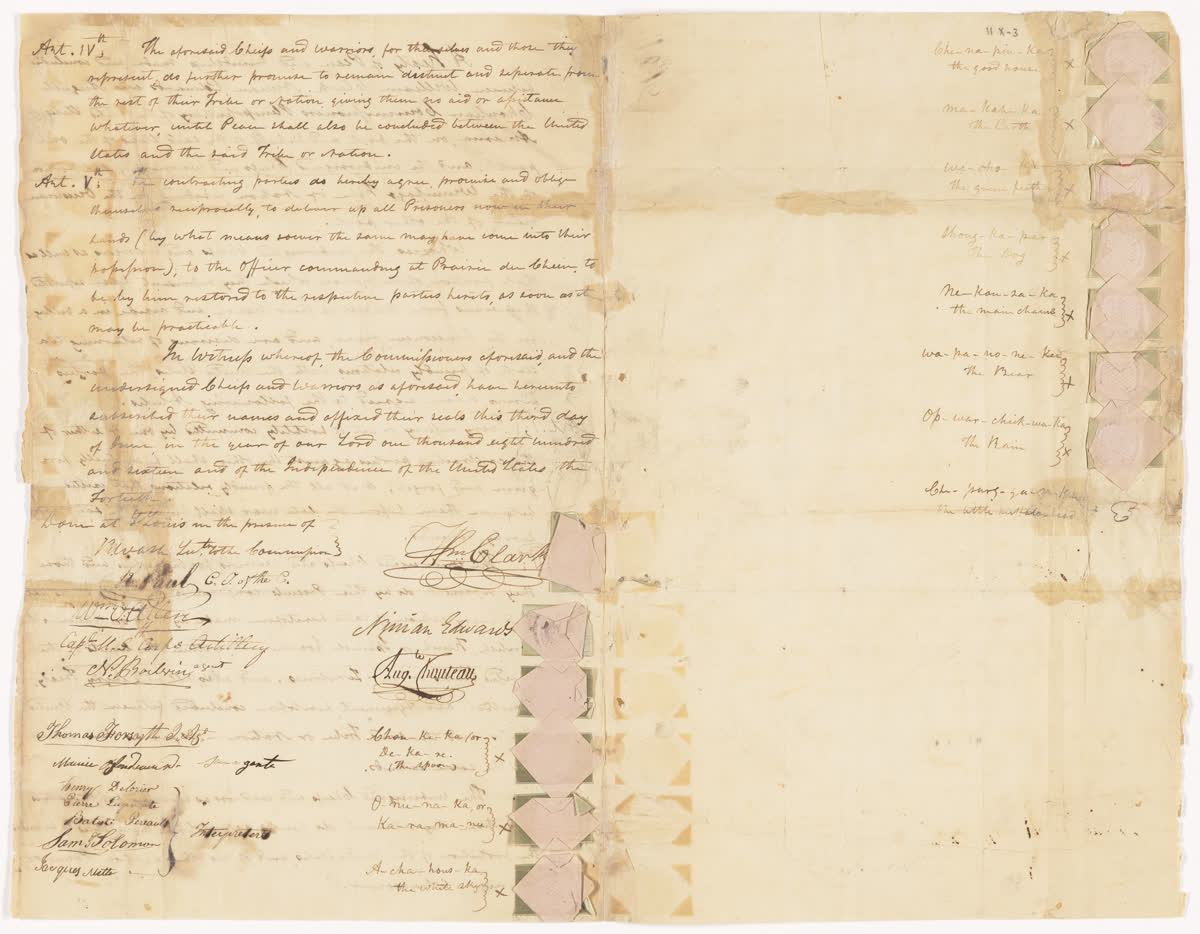 Art. IVth The aforesaid Chiefs and warriors for themselves and those they
represent, do further promise to remain distinct and seperate from
the rest of their Tribe or Nation giving them no aid or assistance
whatever, until Peace shall also be concluded between the United
States and the said Tribe or Nation.
Art. Vth The contracting parties do hereby agree, promise and oblige
themselves reciprocally, to deliver up all Prisoners now in their
hands (by what means soever the same may have come into their
possession), to the Officer commanding at Prairie du Chein, to
be by him restored to the respective parties hereto, as soon as it
may be practicable.
In Witness whereof, the Commissioners aforesaid, and the
undersigned Chiefs and Warriors as aforesaid, have hereunto
subscribed their names and affixed their seals this third day
of June, in the year of our Lord one thousand eight hundred
and sixteen and of the Independence of the United States the
Fortieth.
Done at St Louis in the presence of
R Wash Secty to the Commission
R. Paul C. I. of the C.
Wm O Allen
Capt U. S. Corps Artillery
N. Boilvin agent
Thomas Forsyth I. Agt
Maurice
Henry Delorier
Pierre Lapointe
Samt Solomon
Jacques Mette
Interpreters
Wm Clark
Ninian Edwards
Augte Chouteau
Chon-ke-ka, (or
De-ka-re.
(the spoon) x
O-nu-na-ka, or
Ka-ra-ma-nu x
A-cha-hous-ka
the white sky x
11 X-3
Che-na-pin-ka
the good house x
ma-kah-ka
the Earth x
we-cho-ka
the green feather x
Shong-ka-par
the Dog x
Ne-kou-za-ka
the main channel x
wa-pa-no-ne-ker
the Bear x
Op-war-chick-wa-ka
the Rain x
Che-purg-
the little